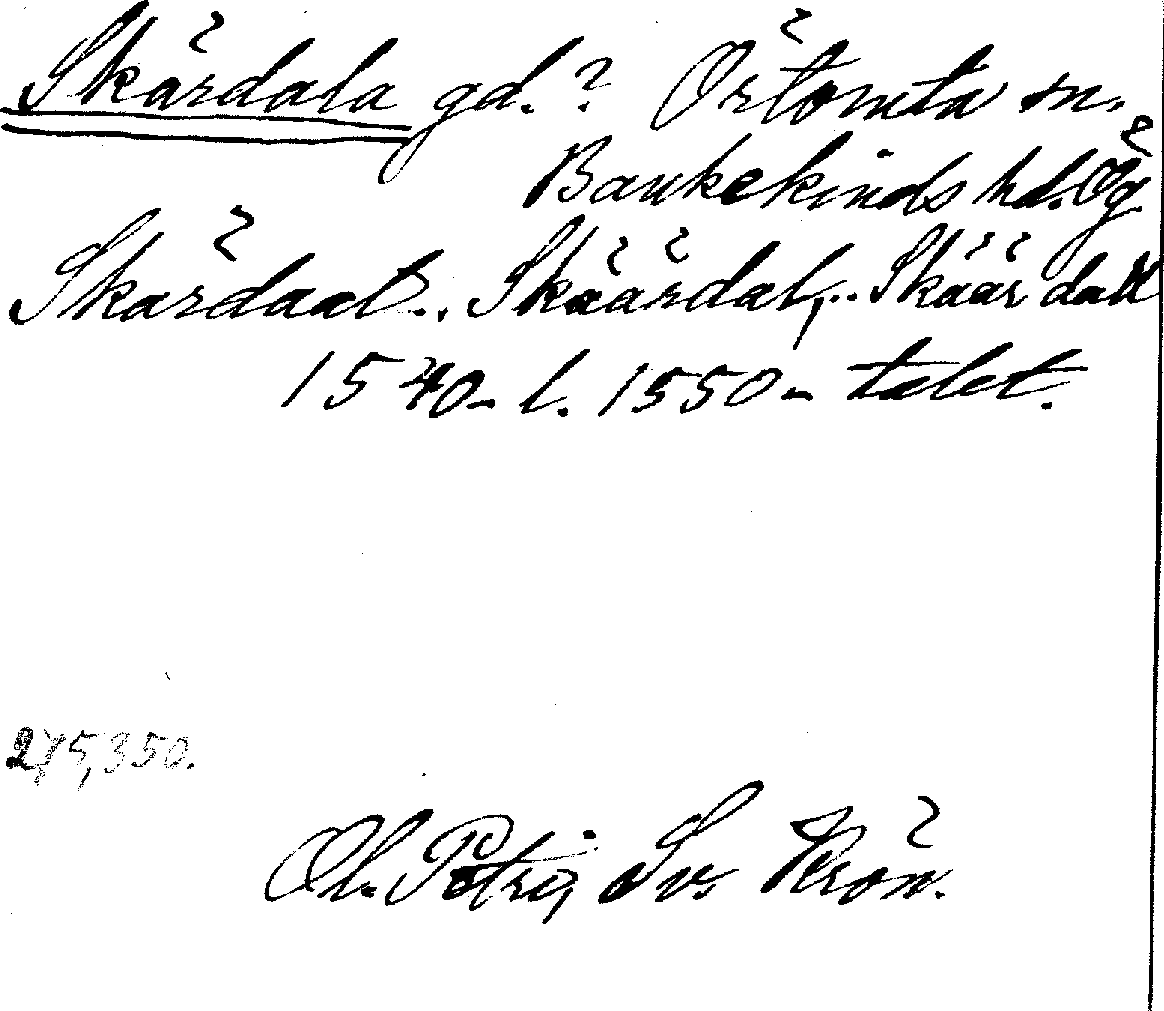 Skärdala gd.? Örtomta sn.
Bankekinds hd. Ög.
Skärdaal.. Skäärdal,.. Skäärdall
1540- l. 1550-talet.
275,350.
Ol. Petri, Sv. Krön.